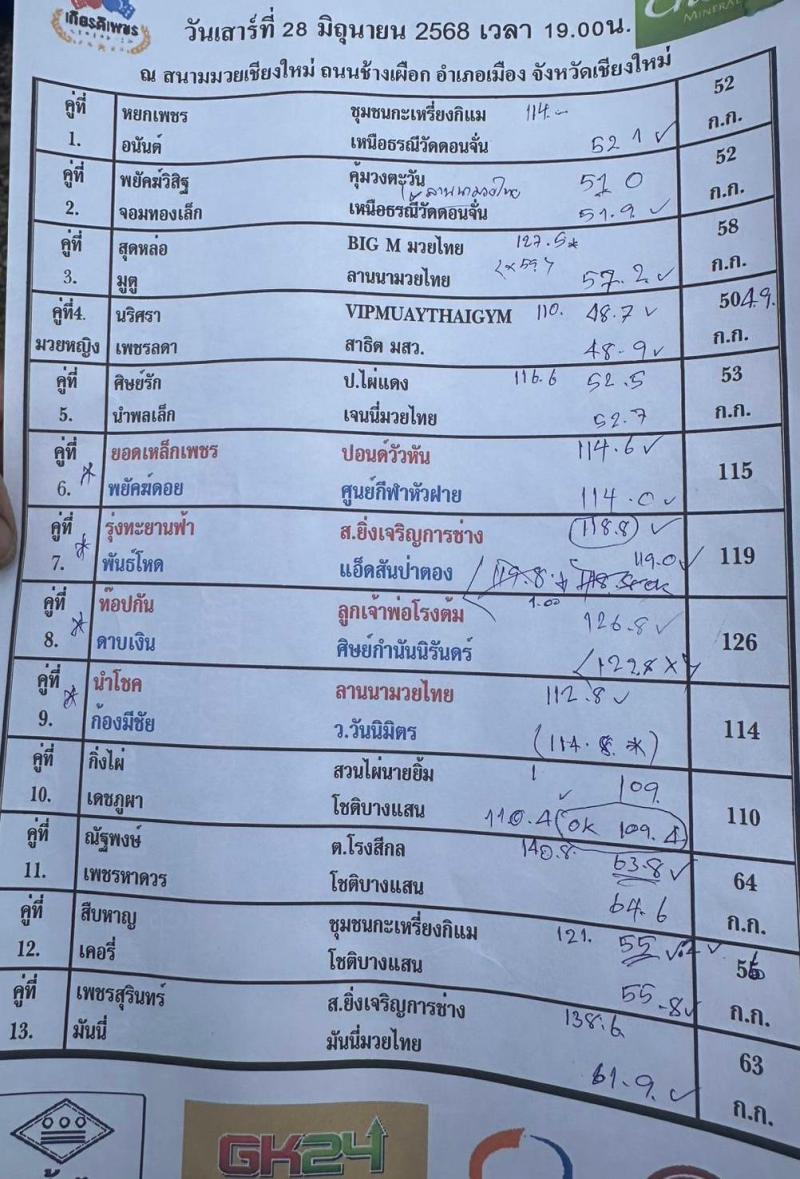 เกียรติเพชร
MINERAL
วันเสาร์ที่ 28 มิถุนายน 2568 เวลา 19.00น.
ณ สนามมวยเชียงใหม่ ถนนช้างเผือก อำเภอเมือง จังหวัดเชียงใหม่
คู่ที่ หยกเพชร ชุมชนกะเหรี่ยงกิแม 114.- 52
1. อนันต์ เหนือธรณีวัดดอนจั่น 52.1 ✓ ก.ก.
คู่ที่ พยัคฆ์วิสิฐ คุ้มวงตะวัน 51.0 52
ลานนามวยไทย
2. จอมทองเล็ก เหนือธรณีวัดดอนจั่น 51.9 ✓ ก.ก.
คู่ที่ สุดหล่อ BIG M มวยไทย 127.5* 58
3. มูตู ลานนามวยไทย 57.2 ✓ ก.ก.
คู่ที่4. นริศรา VIPMUAYTHAIGYM 110. 48.7 ✓ 50 49.
มวยหญิง เพชรลดา สาธิต มสว. 48.9 ✓ ก.ก.
คู่ที่ ศิษย์รัก ป.ไผ่แดง 116.6 52.5 53
5. นำพลเล็ก เจนนี่มวยไทย 52.7 ก.ก.
คู่ที่ ยอดเหล็กเพชร ปอนด์วัวหัน 114.6 ✓ 115
6. * พยัคฆ์ดอย ศูนย์กีฬาหัวฝาย 114.0 ✓
คู่ที่ รุ่งทะยานฟ้า ส.ยิ่งเจริญการช่าง 118.8 ✓ 119
7. * พันธ์โหด แอ็ดสันป่าตอง 119.8 119.0 ✓
1.00
คู่ที่ ท๊อปกัน ลูกเจ้าพ่อโรงต้ม 126.8 ✓ 126
8. * ดาบเงิน ศิษย์กำนันนิรันดร์ (122.8 X)
คู่ที่ นำโชค ลานนามวยไทย 112.8 ✓ 114
9. * ก้องมีชัย ว.วันนิมิตร (114.8 *)
คู่ที่ กิ่งไผ่ สวนไผ่นายยิ้ม 109. 110
10. เดชภูผา โชติบางแสน 110.4 ✓ (ok 109.4)
คู่ที่ ณัฐพงษ์ ต.โรงสีกล 140.8. 63.8 ✓ 64
11. เพชรหาดวร โชติบางแสน 64.6 ก.ก.
คู่ที่ สืบหาญ ชุมชนกะเหรี่ยงกิแม 121. 55 ✓ 56
12. เคอรี่ โชติบางแสน 55.8 ✓ ก.ก.
คู่ที่ เพชรสุรินทร์ ส.ยิ่งเจริญการช่าง 138.6 63
13. มันนี่ มันนี่มวยไทย 61.9 ✓ ก.ก.
GK24